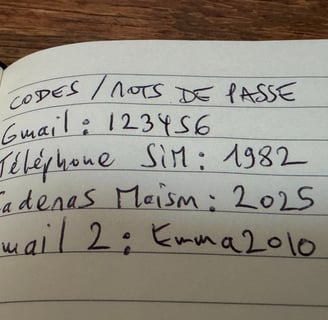 CODES / MOTS DE PASSE
Gmail : 123456
Téléphone SIM : 1982
Cadenas Maison : 2025
mail 2 : Emma2010